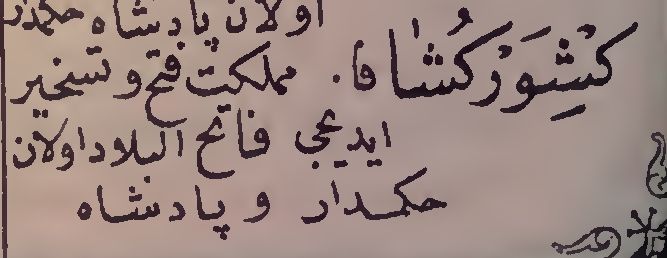 اولان پادشاه حكمدار
كِشِوَرْكُشا فا. مملكت فتح و تسخیر
ایدیجی فاتح البلاد اولان
حكمدار و پادشاه